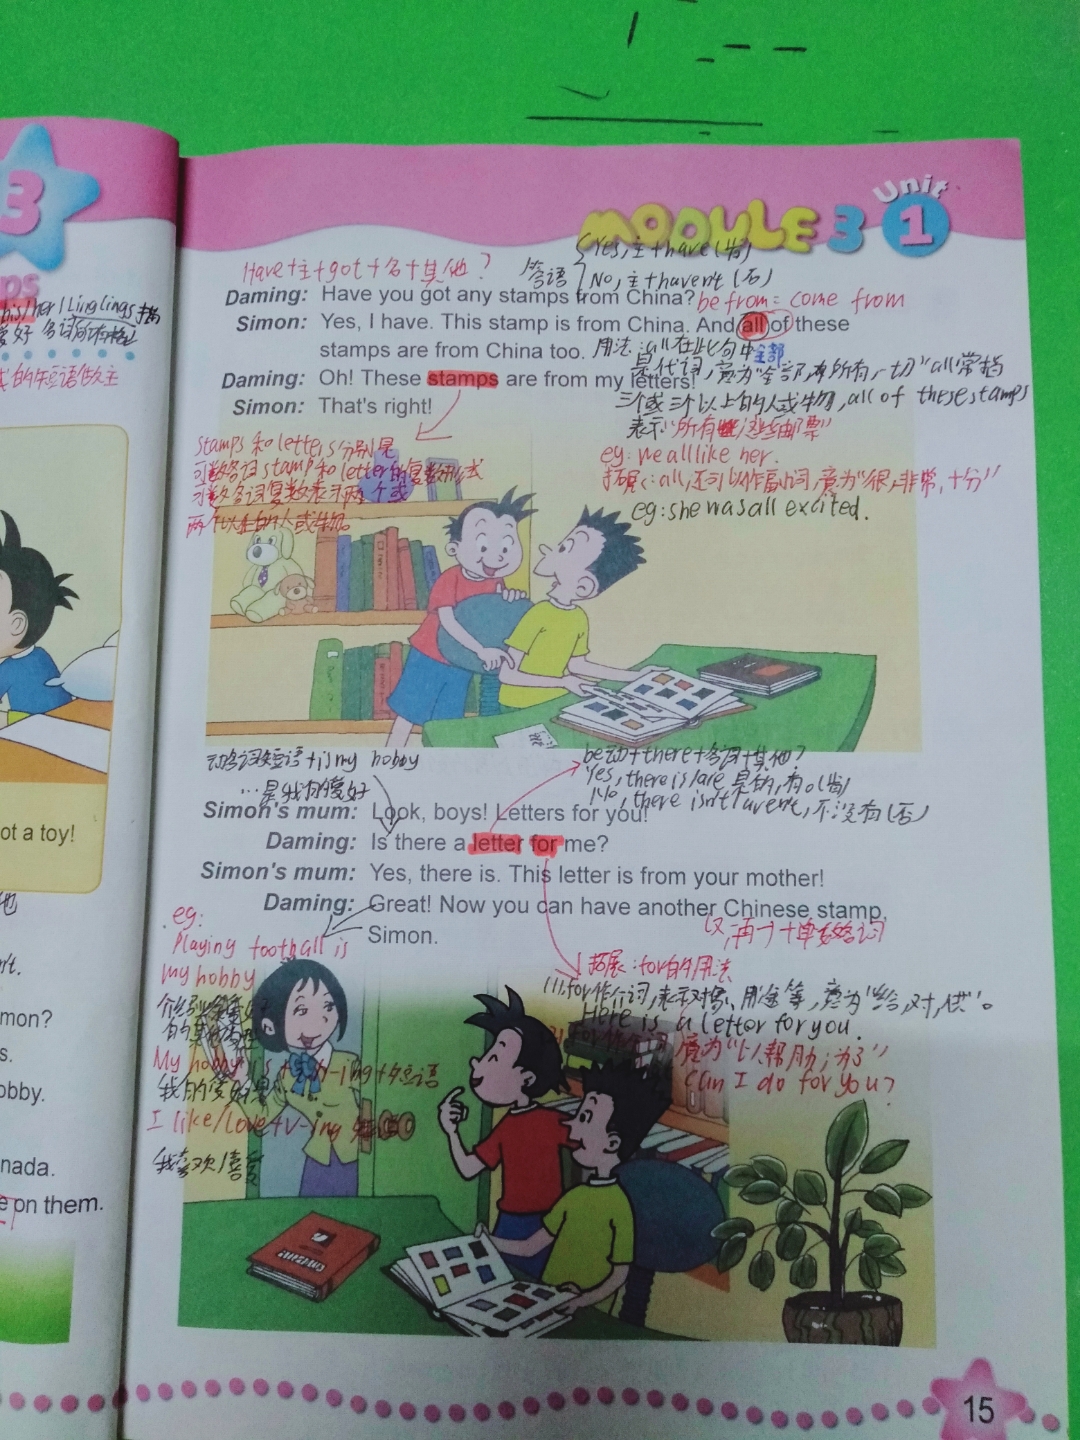 3
ps
his/her/Linglings
爱好 名词所有格
的短语做主
ot a toy!
他
n't.
mon?
s.
obby.
nada.
e on them.
MODULE 3 Unit 1
Have+主+got+名+其他?
答语
Yes,主+have(肯)
No,主+haven't(否)
Daming: Have you got any stamps from China?
be from = come from
Simon: Yes, I have. This stamp is from China. And all of these
stamps are from China too.
用法:all在此句中
全部
是代词,意为"全部,所有,一切"all常指
Daming: Oh! These stamps are from my letters!
三个或三个以上的人或物,all of these stamps
Simon: That's right!
表示"所有这些邮票"
stamps和letters分别是
可数名词stamp和letter的复数形式
可数名词复数表示两个或
两个以上的人或物。
eg: we all like her.
拓展:all,还可以作副词,意为"很,非常,十分"
eg: she was all excited.
动名词短语+is my hobby
…是我的爱好
be动+there+名词+其他?
Yes, there is/are 是的,有。(肯)
No, there isn't/aren't,不,没有(否)
Simon's mum: Look, boys! Letters for you!
Daming: Is there a letter for me?
Simon's mum: Yes, there is. This letter is from your mother!
Daming: Great! Now you can have another Chinese stamp,
Simon.
又,再一个+单数名词
eg:
Playing football is
my hobby
拓展:for的用法
(1).for作介词,表示对象、用途等,意为"给,对,供"。
Here is a letter for you.
意为"以帮助;为了"
Can I do for you?
My hobby is +v-ing+短语
我的爱好是
I like/love+v-ing
我喜欢/喜爱
15